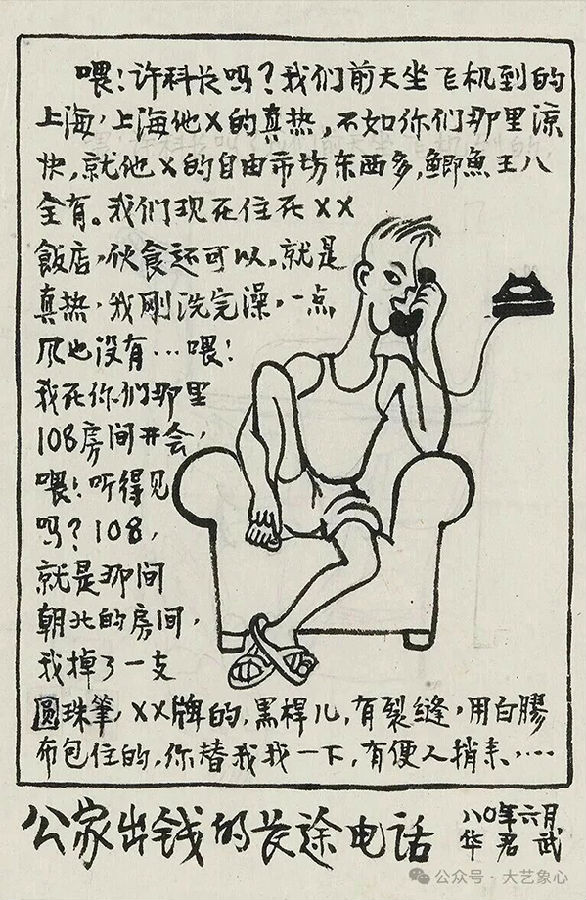 喂！许科长吗？我们前天坐飞机到的
上海，上海他X的真热，不如你们那里凉
快，就他X的自由市场东西多，鲫魚王八
全有。我们现在住在XX
飯店，伙食还可以，就是
真热，我刚洗完澡，一点
风也没有…喂！
我在你们那里
108房间开会，
喂！听得见
吗？108，
就是那间
朝北的房间，
我掉了一支
圆珠筆，XX牌的，黑桿儿，有裂缝，用白膠
布包住的，你替我找一下，有便人捎来……
公家出钱的长途电话
八〇年六月
华君武
公众号·大艺象心